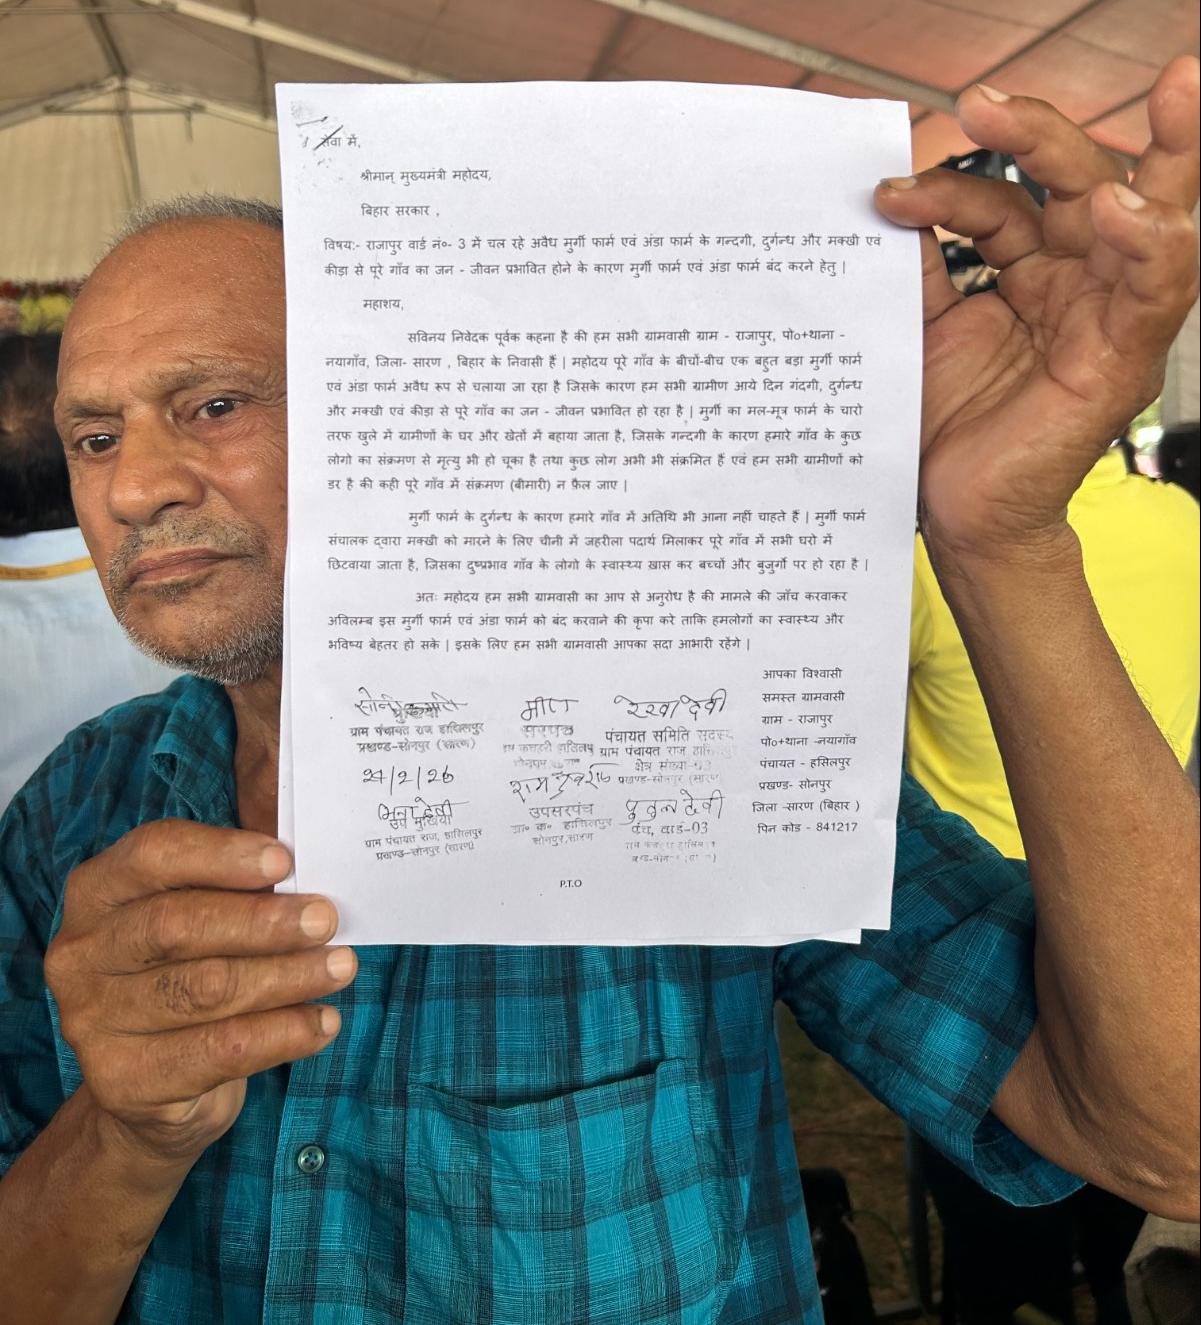 सेवा में,
श्रीमान् मुख्यमंत्री महोदय,
बिहार सरकार ,
विषय:- राजापुर वार्ड नं०- 3 में चल रहे अवैध मुर्गी फार्म एवं अंडा फार्म के गन्दगी, दुर्गन्ध और मक्खी एवं
कीड़ा से पूरे गाँव का जन - जीवन प्रभावित होने के कारण मुर्गी फार्म एवं अंडा फार्म बंद करने हेतु |
महाशय,
सविनय निवेदक पूर्वक कहना है की हम सभी ग्रामवासी ग्राम - राजापुर, पो०+थाना -
नयागाँव, जिला- सारण , बिहार के निवासी हैं | महोदय पूरे गाँव के बीचों-बीच एक बहुत बड़ा मुर्गी फार्म
एवं अंडा फार्म अवैध रूप से चलाया जा रहा है जिसके कारण हम सभी ग्रामीण आये दिन गंदगी, दुर्गन्ध
और मक्खी एवं कीड़ा से पूरे गाँव का जन - जीवन प्रभावित हो रहा है | मुर्गी का मल-मूत्र फार्म के चारो
तरफ खुले में ग्रामीणों के घर और खेतों में बहाया जाता है, जिसके गन्दगी के कारण हमारे गाँव के कुछ
लोगो का संक्रमण से मृत्यु भी हो चूका है तथा कुछ लोग अभी भी संक्रमित हैं एवं हम सभी ग्रामीणों को
डर है की कही पूरे गाँव में संक्रमण (बीमारी) न फ़ैल जाए |
मुर्गी फार्म के दुर्गन्ध के कारण हमारे गाँव में अतिथि भी आना नहीं चाहते हैं | मुर्गी फार्म
संचालक द्वारा मक्खी को मारने के लिए चीनी में जहरीला पदार्थ मिलाकर पूरे गाँव में सभी घरो में
छिटवाया जाता है, जिसका दुष्प्रभाव गाँव के लोगो के स्वास्थ्य ख़ास कर बच्चों और बुजुर्गो पर हो रहा है |
अतः महोदय हम सभी ग्रामवासी का आप से अनुरोध है की मामले की जाँच करवाकर
अविलम्ब इस मुर्गी फार्म एवं अंडा फार्म को बंद करवाने की कृपा करे ताकि हमलोगों का स्वास्थ्य और
भविष्य बेहतर हो सके | इसके लिए हम सभी ग्रामवासी आपका सदा आभारी रहेंगे |
आपका विश्वासी
समस्त ग्रामवासी
ग्राम - राजापुर
पो०+थाना -नयागाँव
पंचायत - हसिलपुर
प्रखण्ड- सोनपुर
जिला -सारण (बिहार )
पिन कोड - 841217
मुखिया
ग्राम पंचायत राज हासिलपुर
प्रखण्ड-सोनपुर (सारण)
24/2/26
उप मुखिया
ग्राम पंचायत राज, हासिलपुर
प्रखण्ड-सोनपुर (सारण)
मीरा
सरपंच
उपसरपंच
ग्रा० क० हासिलपुर
सोनपुर,सारण
रेखा देवी
पंचायत समिति सदस्य
ग्राम पंचायत राज
क्षेत्र संख्या-03
प्रखण्ड-सोनपुर
देवी
पंच, वार्ड-03
P.T.O